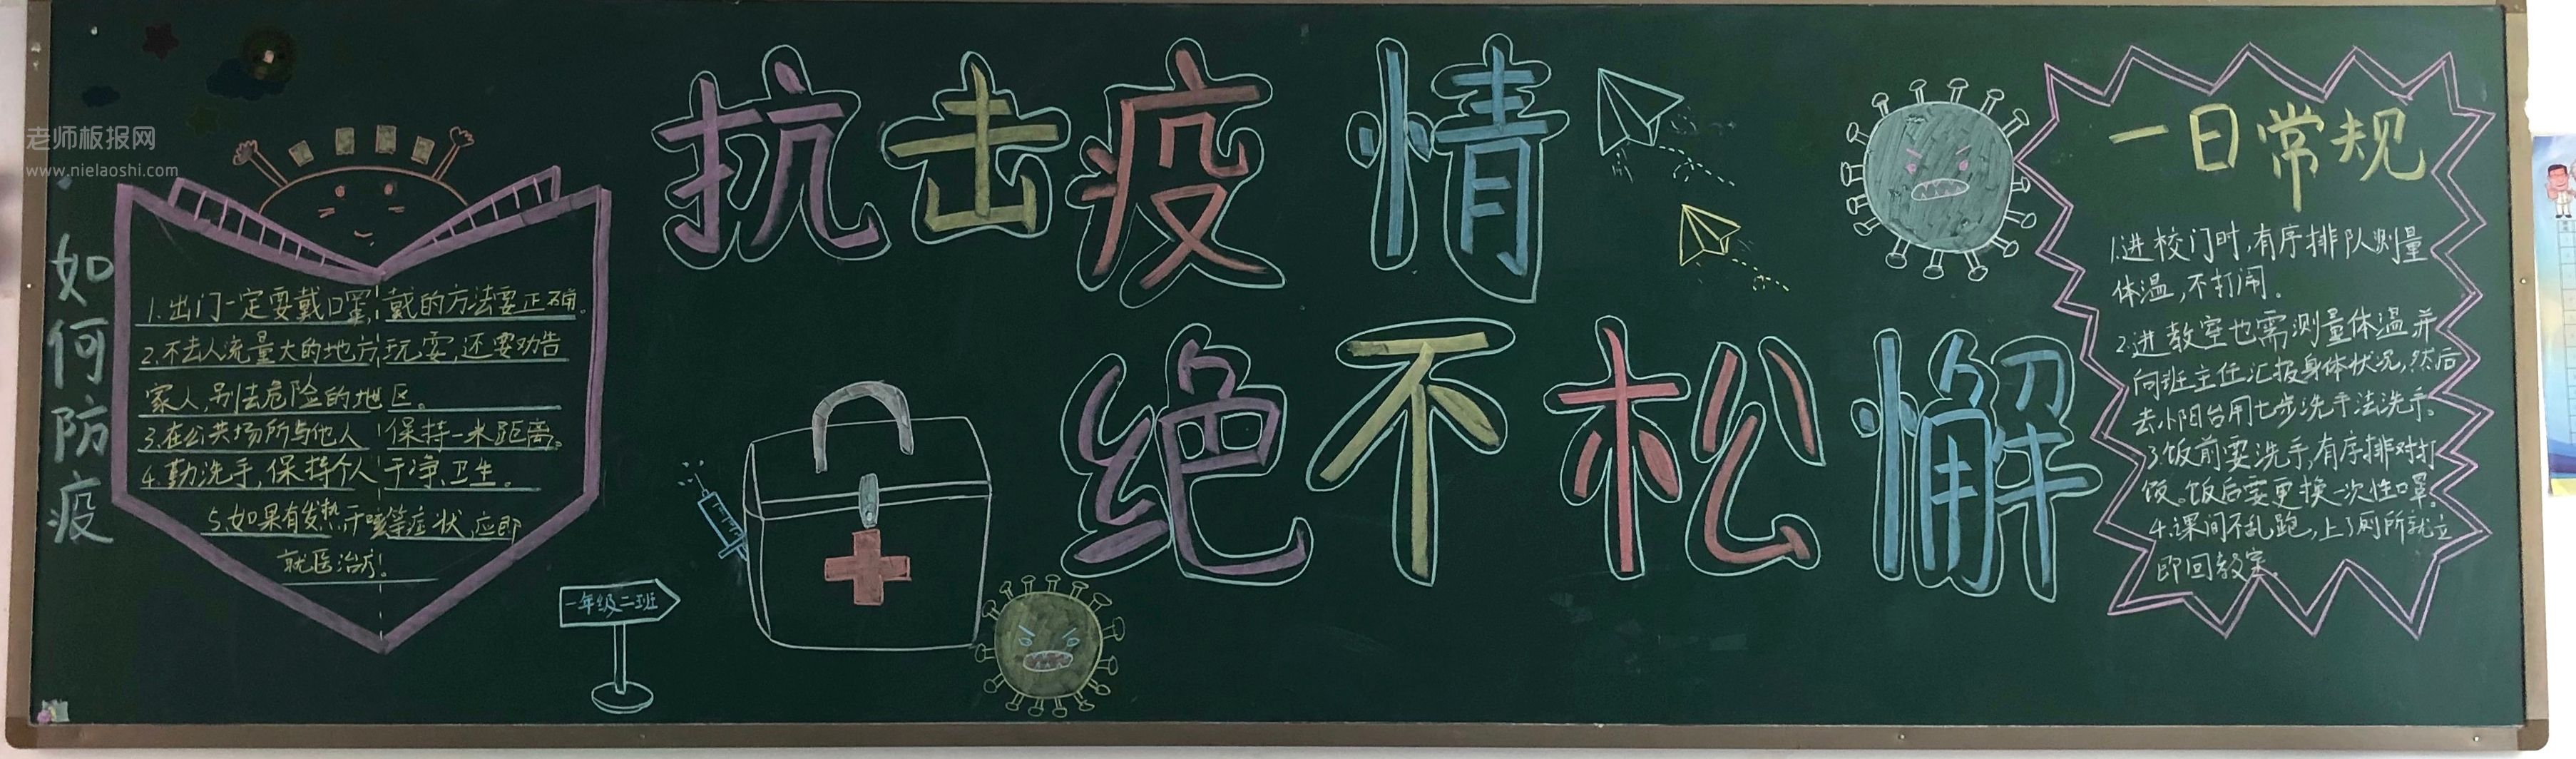 老师板报网
www.nielaoshi.com
抗击疫情
绝不松懈
如何防疫
1.出门一定要戴口罩,戴的方法要正确。
2.不去人流量大的地方玩耍,还要劝告
家人,别去危险的地区。
3.在公共场所与他人保持一米距离。
4.勤洗手,保持个人干净卫生。
5.如果有发热,干咳等症状,应即
就医治疗!
一年级二班
一日常规
1.进校门时,有序排队测量
体温,不打闹。
2.进教室也需测量体温并
向班主任汇报身体状况,然后
去小阳台用七步洗手法洗手。
3.饭前要洗手,有序排对打
饭。饭后要更换一次性口罩。
4.课间不乱跑,上了厕所就立
即回教室。